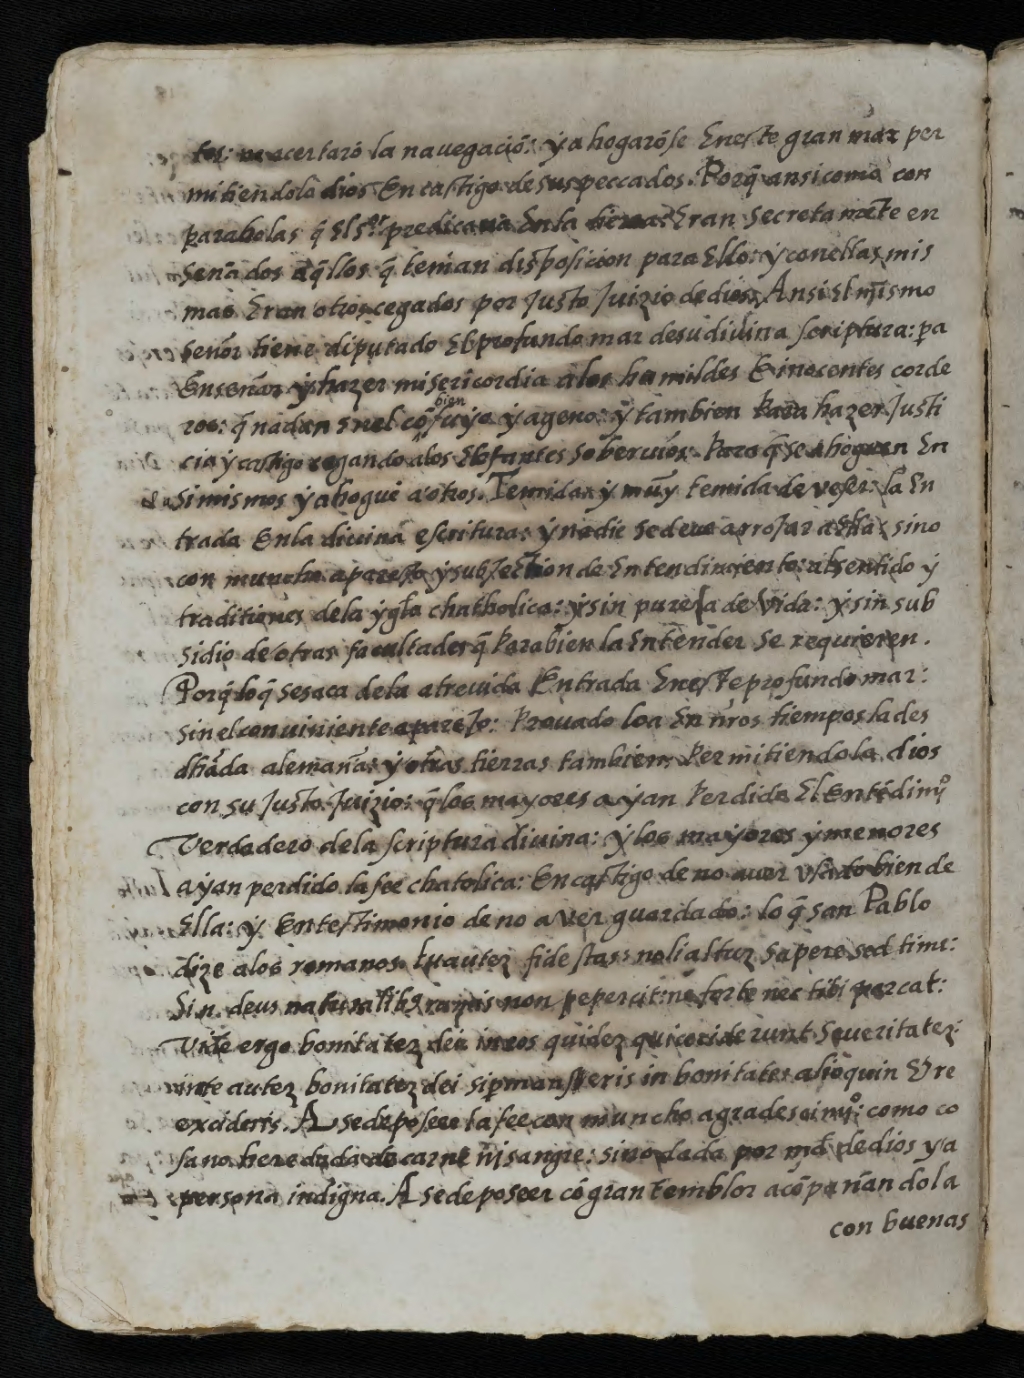 tos: no acertarō la nauegaciō: y ahogarōse Eneste gran mar per
mitiendolo dios En castigo de sus peccados. Porq̄ ansi como con
parabolas q̄ El S.or predicaua Enla tierra: Eran secretamēte en
señados aq̄llos q̄ tenian disposicion para Ello: y conellas mis
mas Eran otros cegados por Justo Juizio de dios. Ansi El mismo
señor tiene diputado El profundo mar desu diuina scriptura: pa
Enseñar y hazer misericordia alos humildes E inocentes corde
ros: q̄ nadan enel cō bien suyo y ageno: y tambien para hazer Justi
cia y castigo cegando alos Elefantes soberuios. Para q̄ se ahoguen En
si mismos y ahoguē a otros. Temida y muy temida deue ser: la En
trada Enla diuina escritura: y nadie se deue arrojar a Ella sino
con muncho aparejo y subjection de Entendimiento: al sentido y
traditiones dela ygla chatholica: y sin puresa de vida: y sin sub
sidio de otras facultades q̄ Para bien la Entender se requieren.
Porq̄ lo q̄ sesaca dela atreuida Entrada Eneste profundo mar:
sin el conuiniente aparejo: Prouado loa En nr̄os tiempos la des
dhāda alemaña: y otras tierras tambien. Permitiendola dios
con su Justo Juizio: q̄ los mayores ayan Perdido El Entēdimỹo
Verdadero dela scriptura diuina: y los mayores y menores
ayan perdido la fee chatolica: En castigo de no auer vsado bien de
Ella: y En testimonio de no aver guardado: lo q̄ san Pablo
dize alos romanos. tu autez fide stas: noli altuz sapere sed time:
Si n. deus naturalibꝫ ramis non pepercit: ne forte nec tibi parcat:
Vide ergo bonitatez dei in eos quidez qui ceciderunt seueritatez:
inte autez bonitatez dei si permanseris in bonitate: alioquin Et re
excideris. A se de poseer la fee con muncho agradescimỹo: como co
sa no heredada de carne ni sangre: sino dada por md̄ de dios y a
persona indigna. A se de poseer cō gran temblor acōpañandola
con buenas